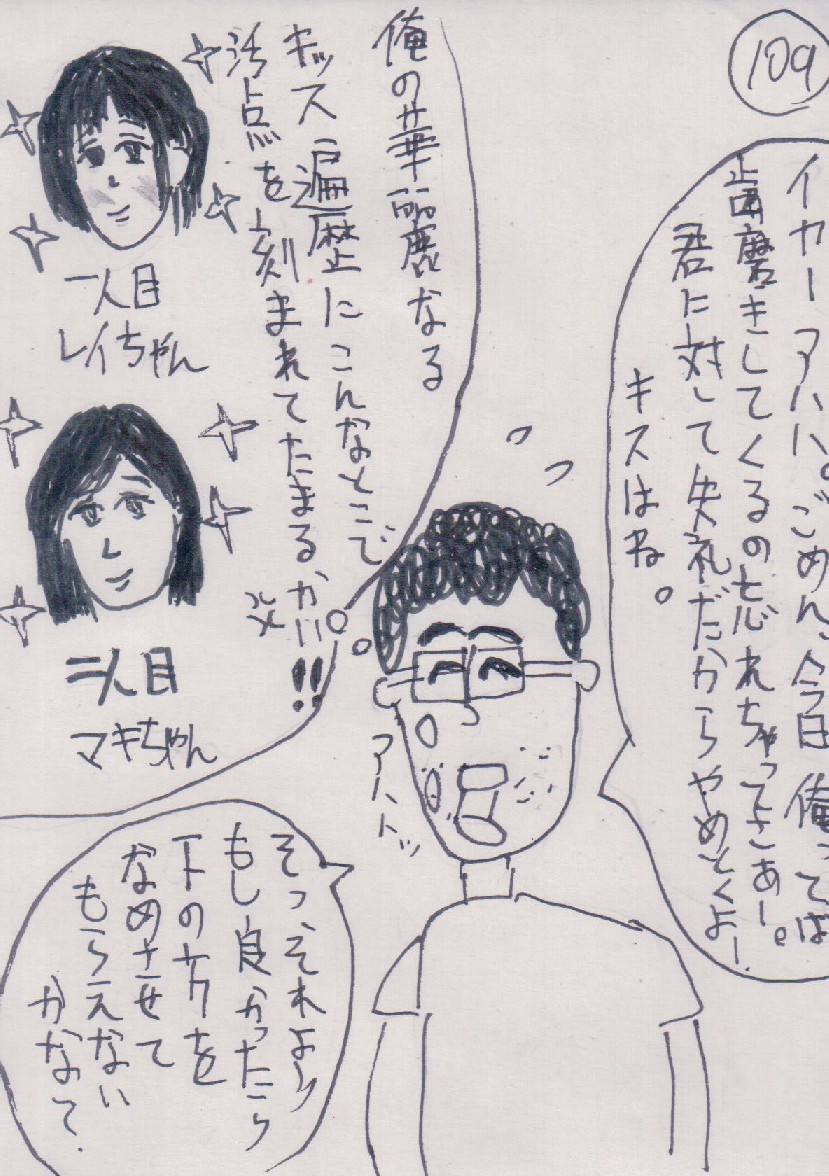 109
イヤーアハハ。ごめん、今日俺ってば
歯磨きしてくるの忘れちゃってさあー。
君に対して失礼だからやめとくよー!
キスはね。
俺の華麗なる
キッス遍歴にこんなとこで
汚点を刻まれてたまるかい!!
一人目
レイちゃん
二人目
マキちゃん
アハトッ
そっ、それより
もし良かったら
下の方を
なめさせて
もらえない
かなて.